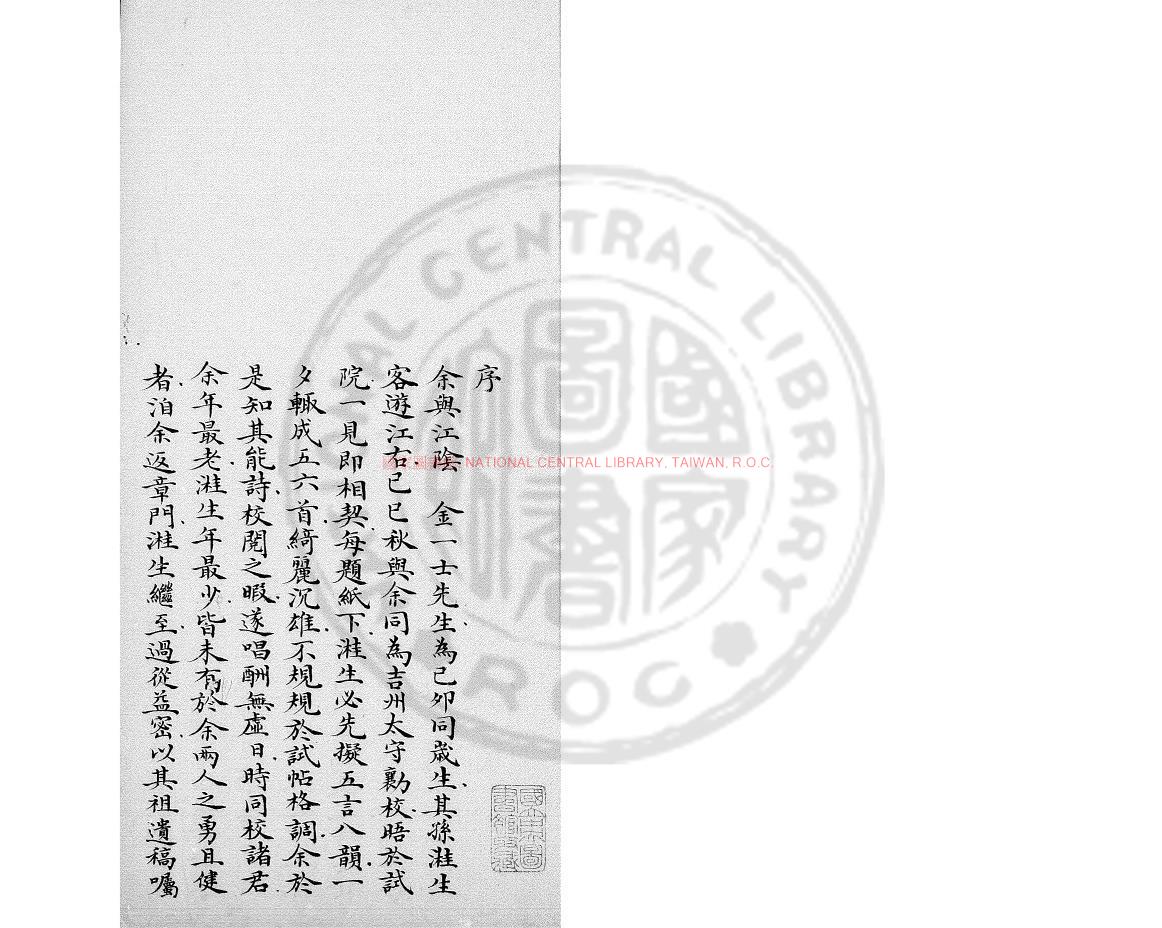 序
余與江陰 金一士先生為己卯同歲生其孫溎生
客遊江右己巳秋與余同為吉州太守勷校晤於試
院一見即相契每題紙下溎生必先擬五言八韻一
夕輙成五六首綺麗沉雄不規規於試帖格調余於
是知其能詩校閱之暇遂唱酬無虛日時同校諸君
余年最老溎生年最少皆未有於余兩人之勇且健
者洎余返章門溎生繼至過從益密以其祖遺稿囑
國立中央圖書館藏
NATIONAL CENTRAL LIBRARY, TAIWAN, R.O.C.
NATIONAL CENTRAL LIBRARY
R.O.C
國家圖書